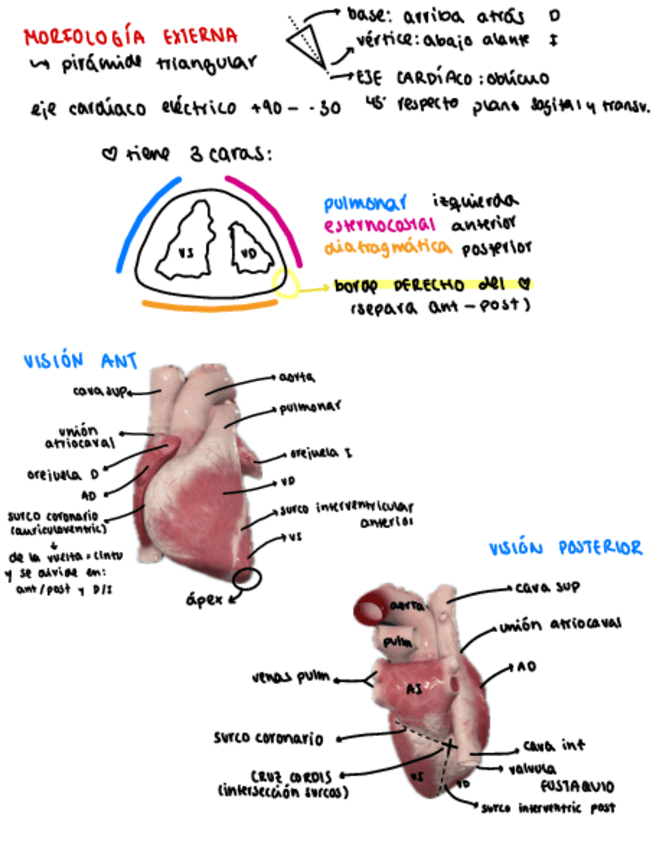 MORFOLOGÍA EXTERNA
↳ pirámide triangular
base: arriba atrás D
vértice: abajo alante I
EJE CARDÍACO: oblicuo
45° respecto plano sagital y transv.
eje cardíaco eléctrico +90 - -30
♡ tiene 3 caras:
VI
VD
pulmonar izquierda
esternocostal anterior
diafragmática posterior
borde DERECHO del ♡
(separa ant-post)
VISIÓN ANT
cava sup
unión
atriocaval
orejuela D
AD
surco coronario
(auriculoventric)
da la vuelta = cintu
y se divide en:
ant/post y D/I
aorta
pulmonar
orejuela I
VD
surco interventricular
anterior
VI
ápex
VISIÓN POSTERIOR
aorta
pulm
venas pulm
AI
surco coronario
CRUZ CORDIS
(intersección surcos)
VI
VD
cava sup
unión atriocaval
AD
cava inf
válvula
EUSTAQUIO
surco interventric post